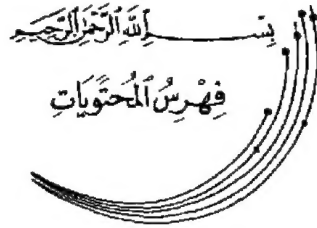 بِسْمِ ٱللَّهِ ٱلرَّحْمَٰنِ ٱلرَّحِيمِ
فِهْرِسُ ٱلْمُحْتَوَيَاتِ